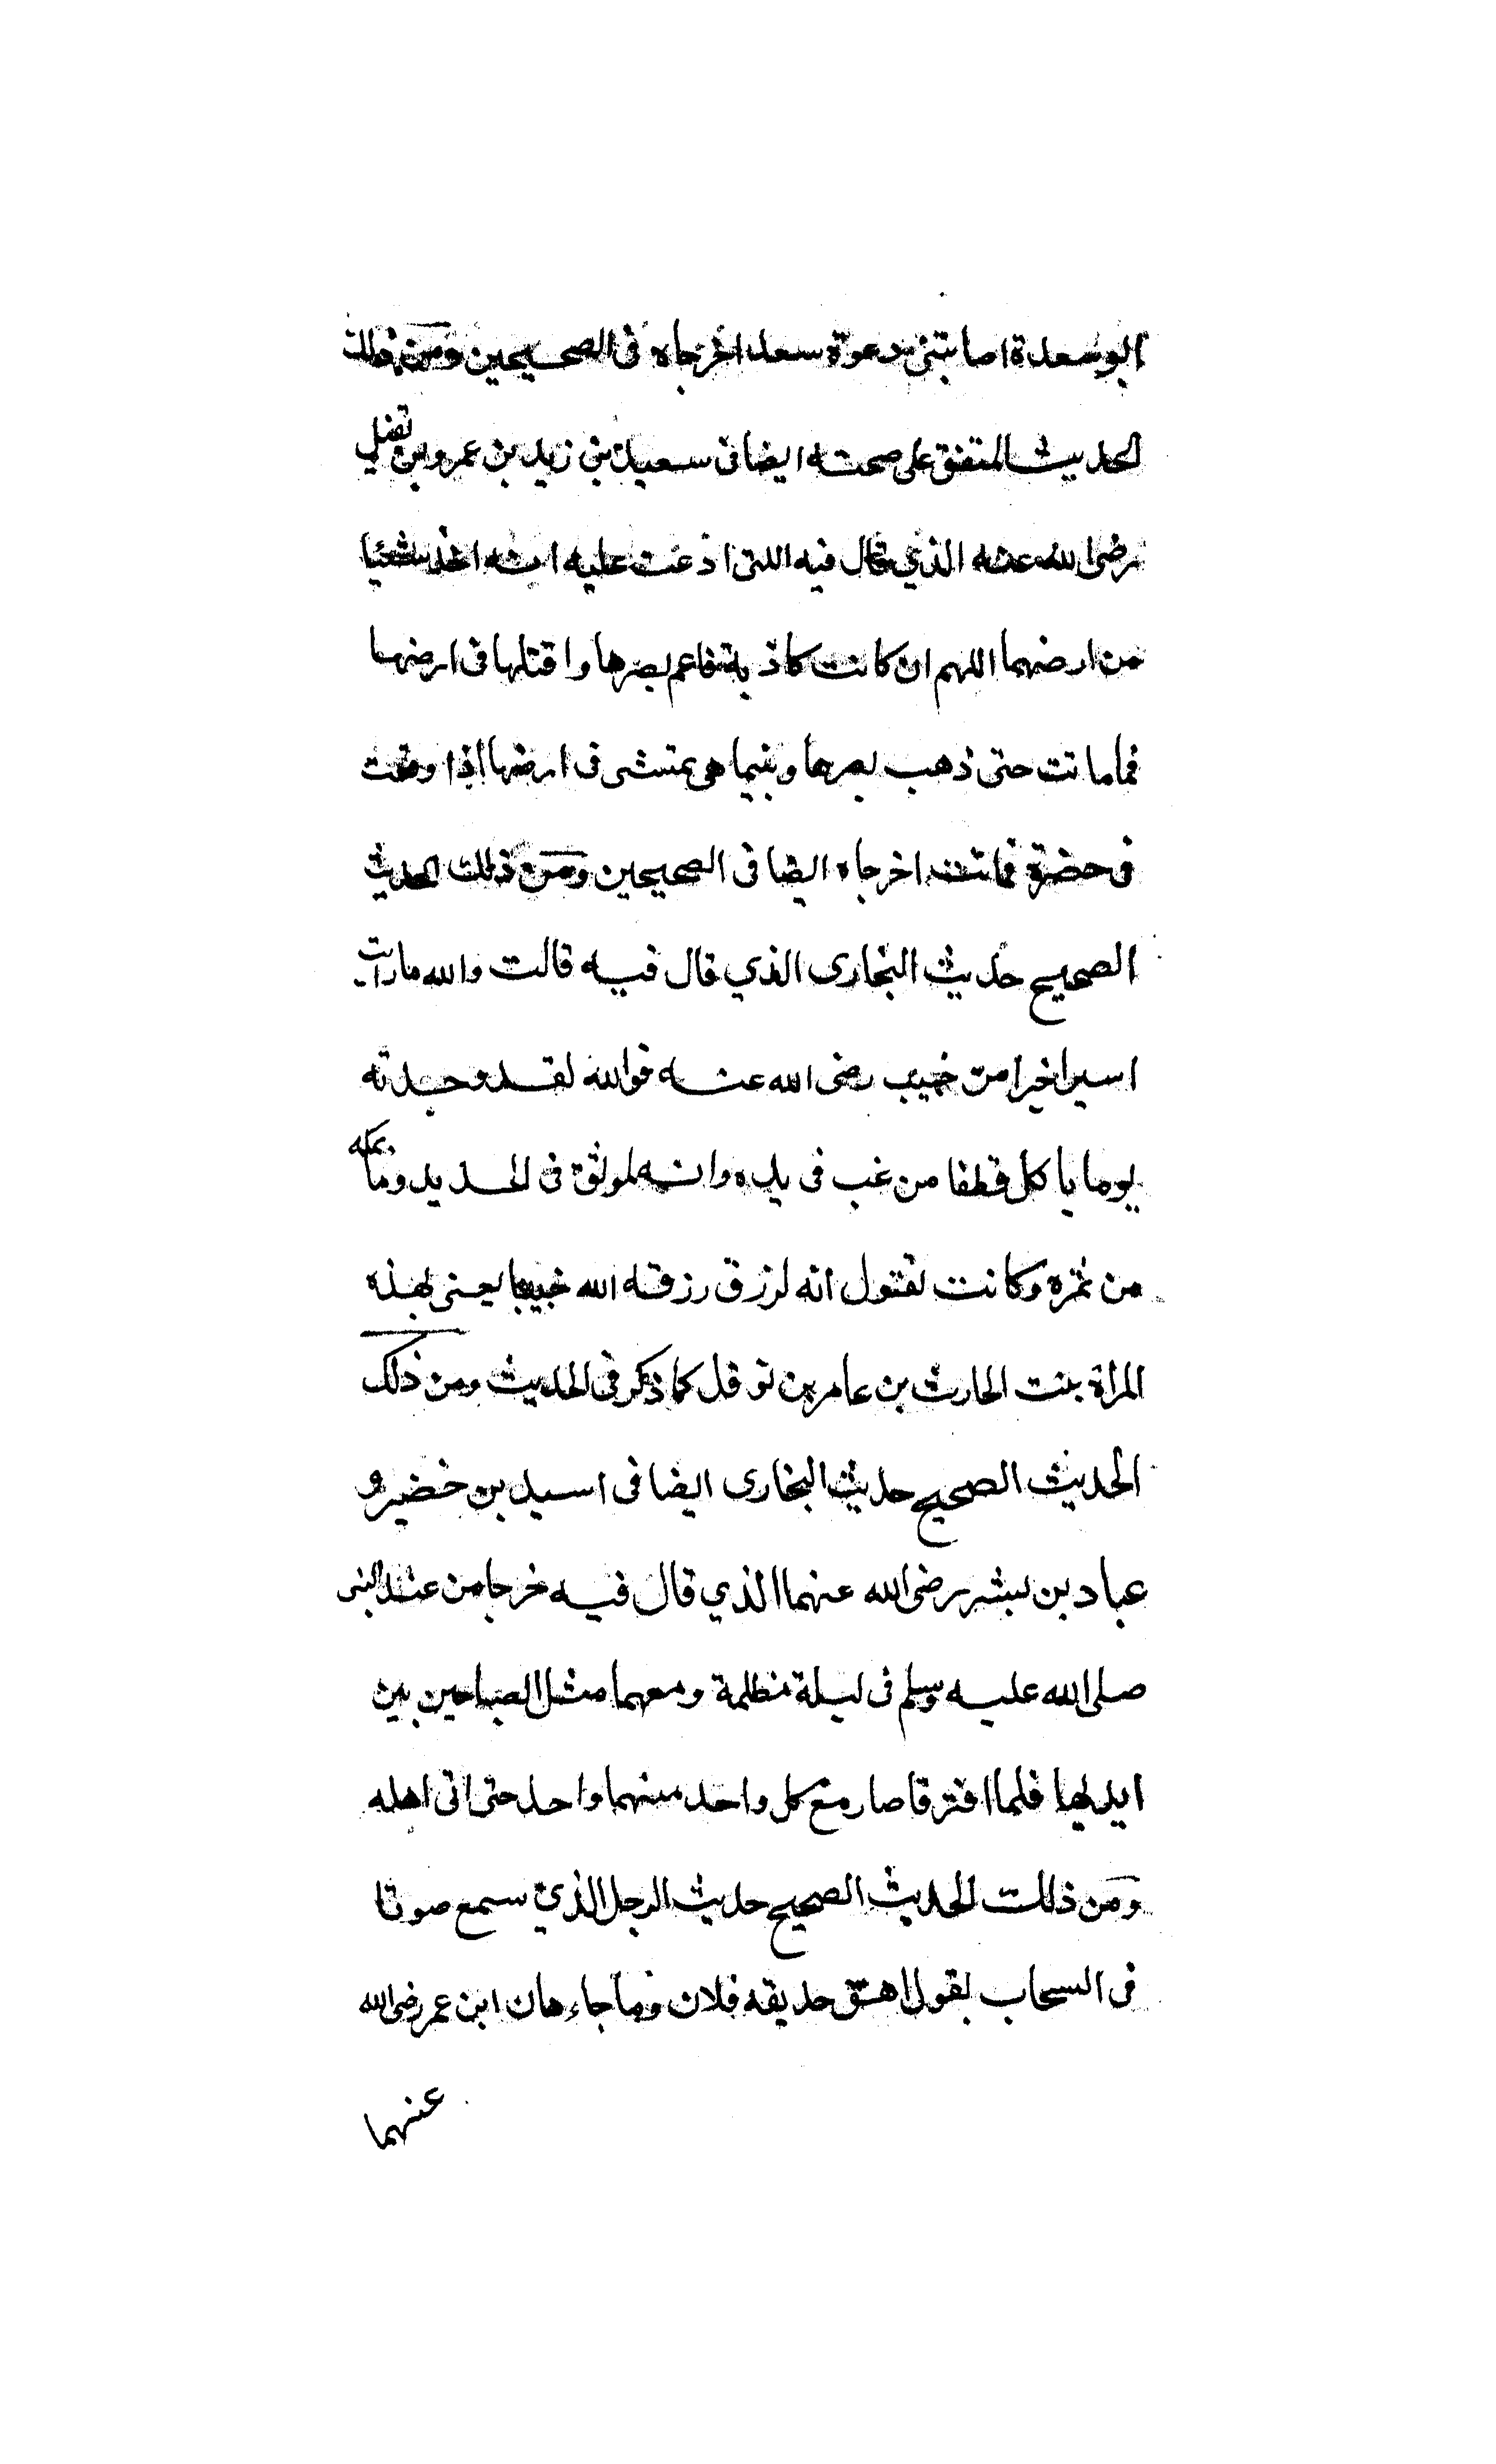 ابو سعدة اصابتنى دعوة سعد اخرجاه فى الصحيحين ومن ذلك
الحديث المتفق على صحته ايضا فى سعيد بن زيد بن عمرو بن نفيل
رضى الله عنه الذي قال فيه اللتى ادعت عليه انه اخذ شيئا
من ارضهما اللهم ان كانت كاذبة فاعم بصرها واقتلها فى ارضها
فماماتت حتى ذهب بصرها وبينما هى تمشى فى ارضها اذا وقعت
فى حضرة فماتت اخرجاه ايضا فى الصحيحين ومن ذلك الحديث
الصحيح حديث البخارى الذي قال فيه قالت والله مارايت
اسيرا خيرا من خبيب رضى الله عنه فوالله لقد وجدته
يوما ياكل قطفا من عنب فى يده وانه لموثق فى الحديد وما بمكه
من ثمره وكانت تقول انه لرزق رزقه الله خبيبا يعنى بهذه
المراة بنت الحارث بن عامر بن نوفل كما ذكر فى الحديث ومن ذلك
الحديث الصحيح حديث البخارى ايضا فى اسيد بن حضير و
عباد بن بشر رضى الله عنهما الذي قال فيه خرجا من عند النبى
صلى الله عليه وسلم فى ليلة مظلمة ومعهما مثل المصباحين بين
ايديهما فلما افترقا صار مع كل واحد منهما واحد حتى اتى اهله
ومن ذلك الحديث الصحيح حديث الرجل الذي سمع صوتا
فى السحاب يقول اسق حديقه فلان وما جاء ان ابن عمر رضى الله
عنهما